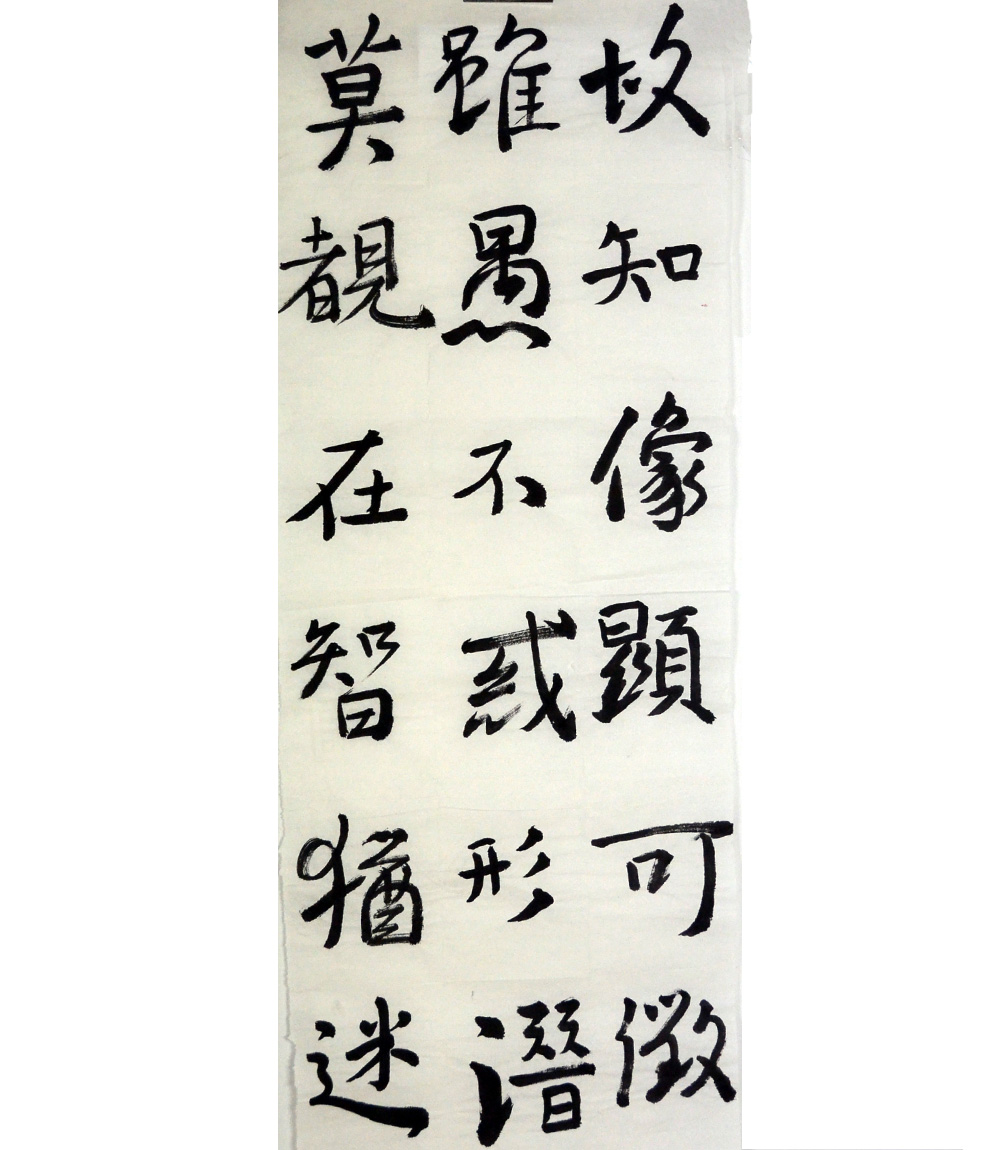 故知像顯可徵
雖愚不惑形潛
莫覩在智猶迷